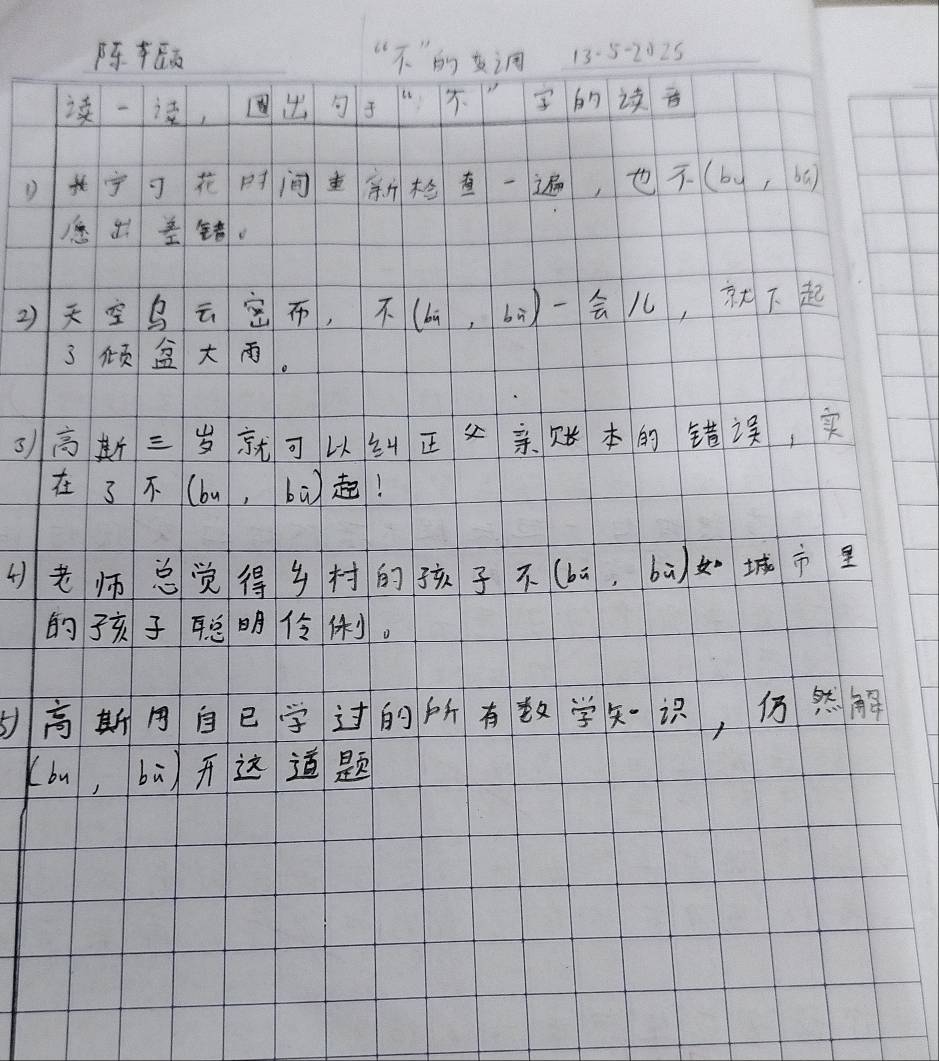 陈 颐 "不"的变调 13-5-2025
读一读，圈出句子"不"字的读音
1) 宁可花时间重新检查一遍，也不(bu, bú)
愿出差错。
2) 天空乌云密布，不(bú, bù)一会儿，就下起
了倾盆大雨。
3) 高斯三岁就可以纠正父亲账本的错误，实
在了不(bu, bù)起！
4) 老师总觉得乡村的孩子不(bú, bù)如城市里
的孩子聪明伶俐。
5) 高斯用自己学过的所有数学知识，仍然解
(bu, bù)开这道题